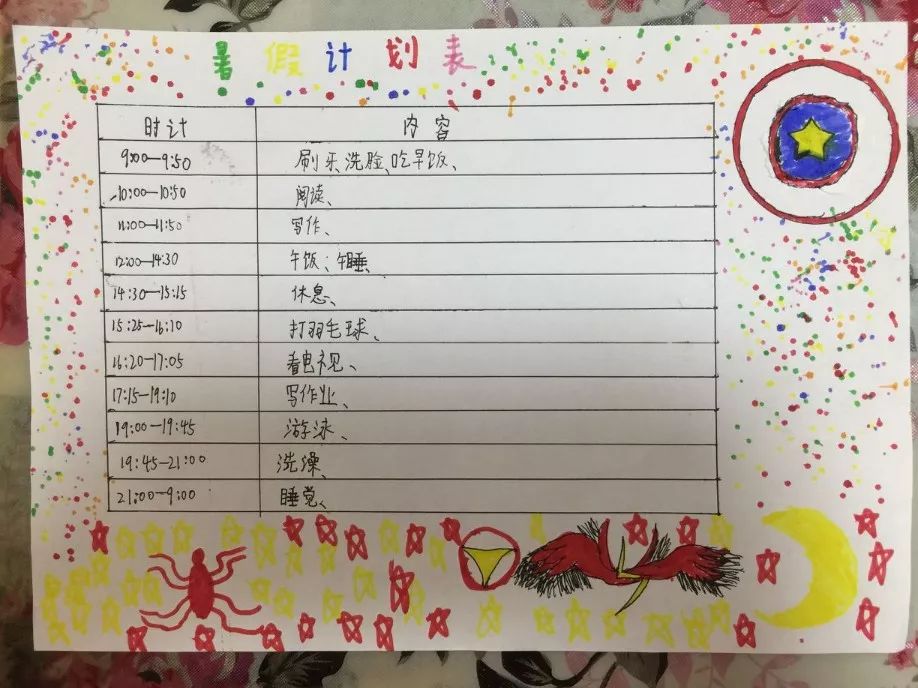 暑假计划表
时计 内容
9:00—9:50 刷牙、洗脸、吃早饭、
10:00—10:50 阅读、
11:00—11:50 写作、
12:00—14:30 午饭、午睡、
14:30—15:15 休息、
15:25—16:10 打羽毛球、
16:20—17:05 看电视、
17:15—19:10 写作业、
19:00—19:45 游泳、
19:45—21:00 洗澡、
21:00—9:00 睡觉、